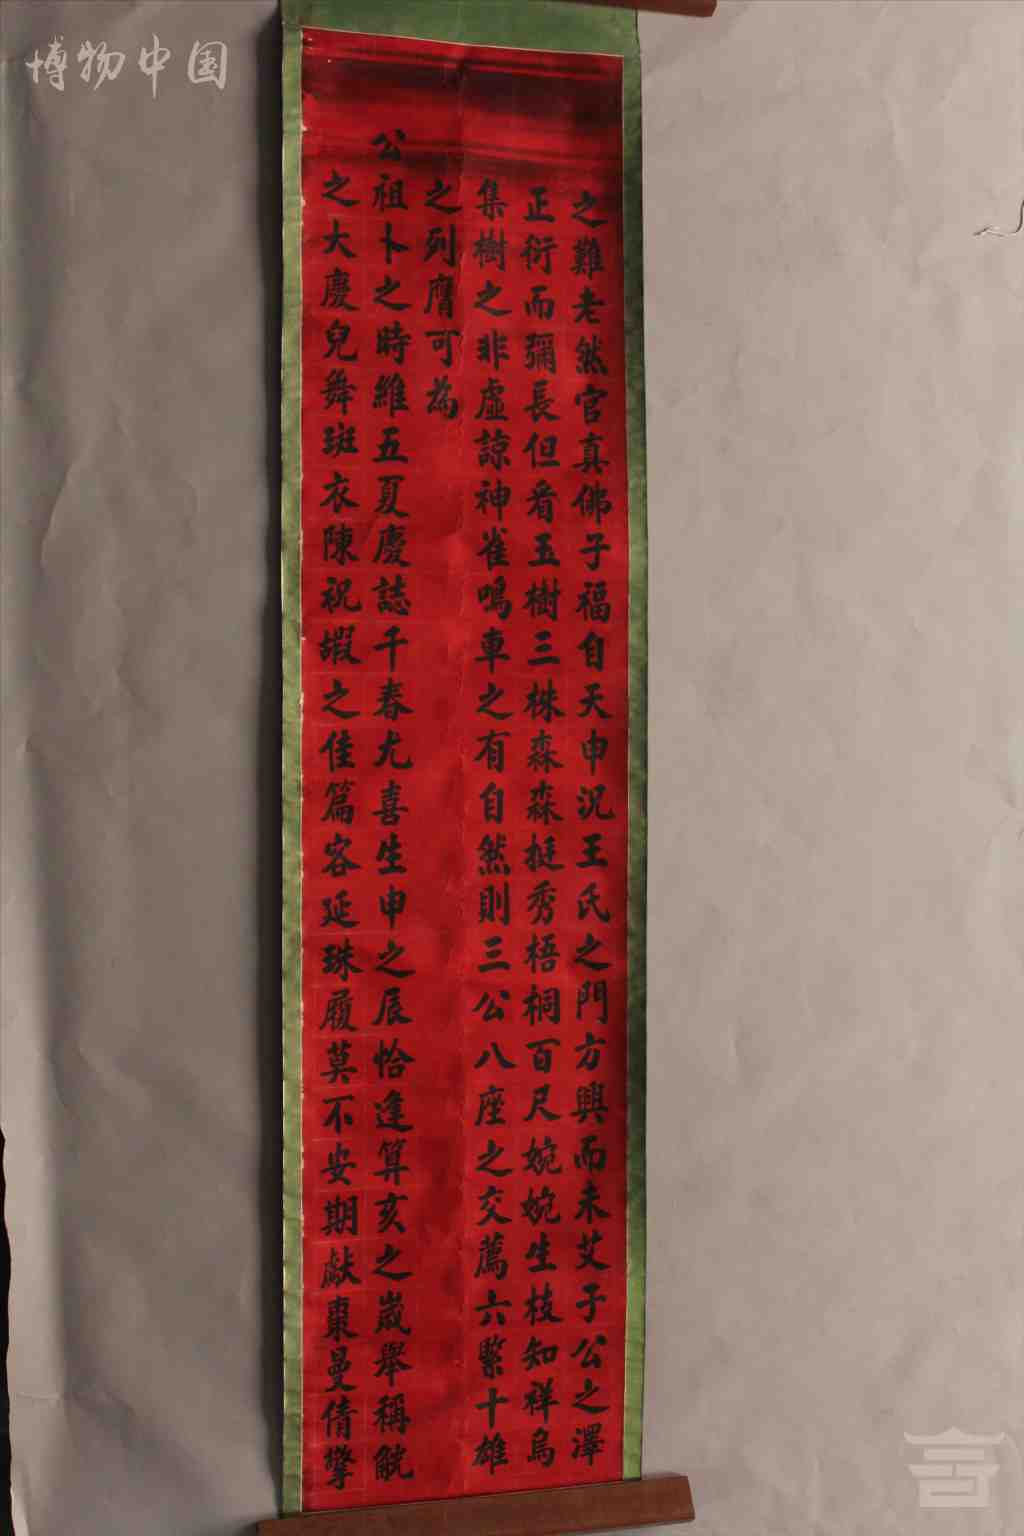 博物中国
之難老然官真佛子福自天申況王氏之門方興而未艾子公之澤
正衍而彌長但看玉樹三株森森挺秀梧桐百尺婉婉生枝知祥烏
集樹之非虛諒神雀鳴車之有自然則三公八座之交薦六繄十雄
之列膺可為
公祖卜之時維五夏慶誌千春尤喜生申之辰恰逢算亥之歲舉稱觥
之大慶兒舞斑衣陳祝嘏之佳篇容延珠履莫不安期獻棗曼倩擎